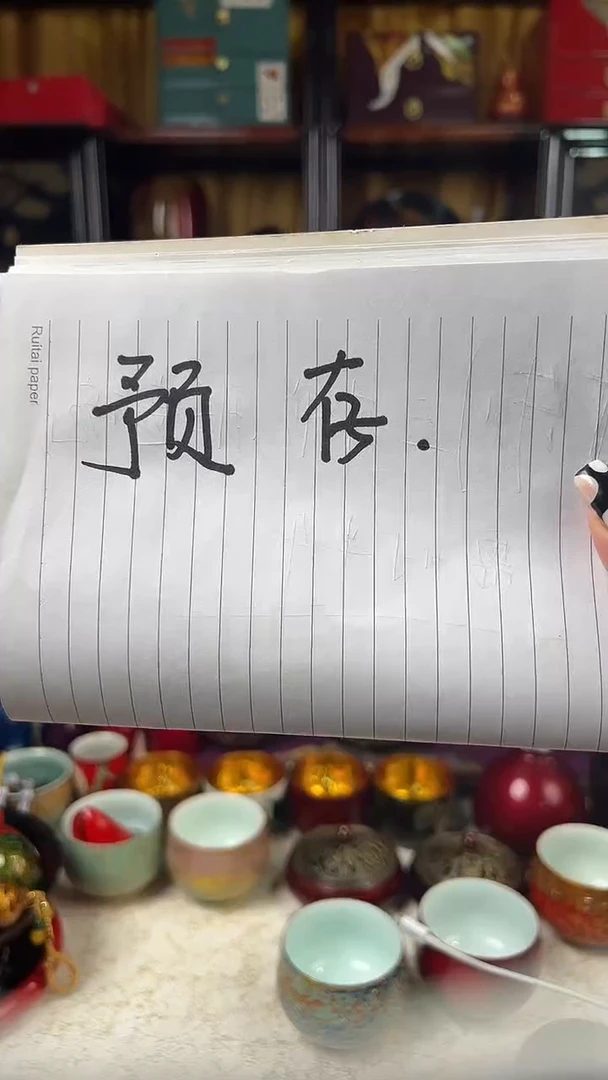 Ruitai paper
预存.